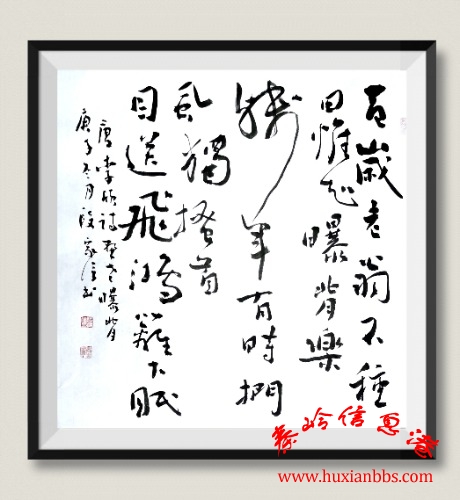 百歲老翁不種
田惟知曝背樂
殘年有時捫
虱獨搔首
目送飛鴻籬下眠
唐李頎詩野老曝背
庚子冬月段家信书
秦岭信息港
www.huxianbbs.com